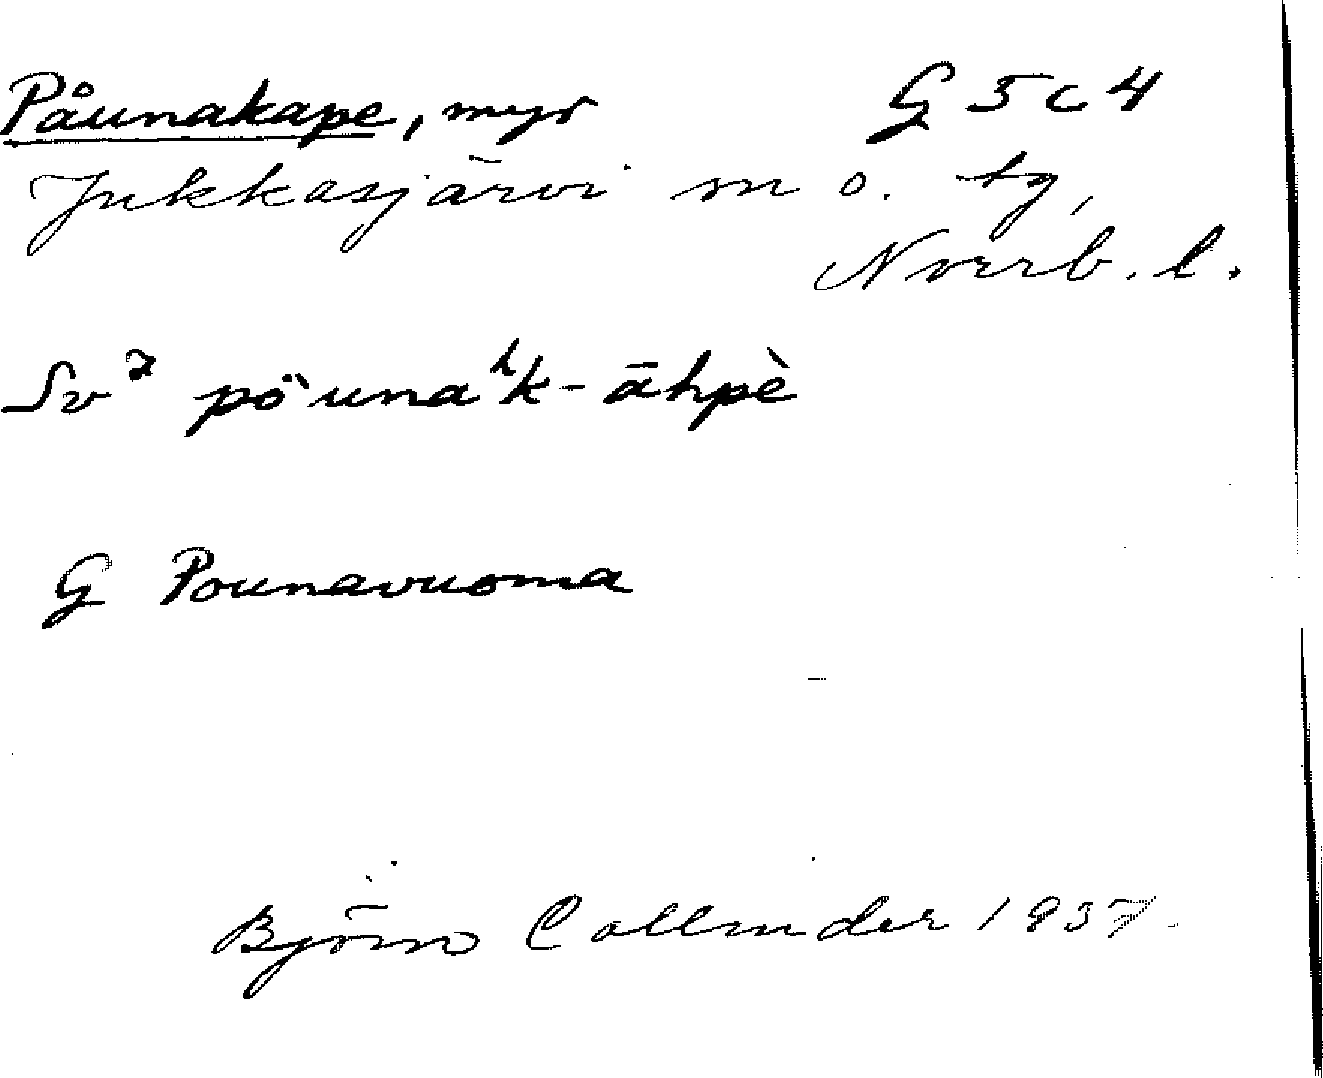 Påunakape, myr G 5 c 4
Jukkasjärvi sn o. tg,
Norrb. l.
Sv² pö̀unaʰk-āhpè
G Pounavuoma
Björn Collinder 1937.